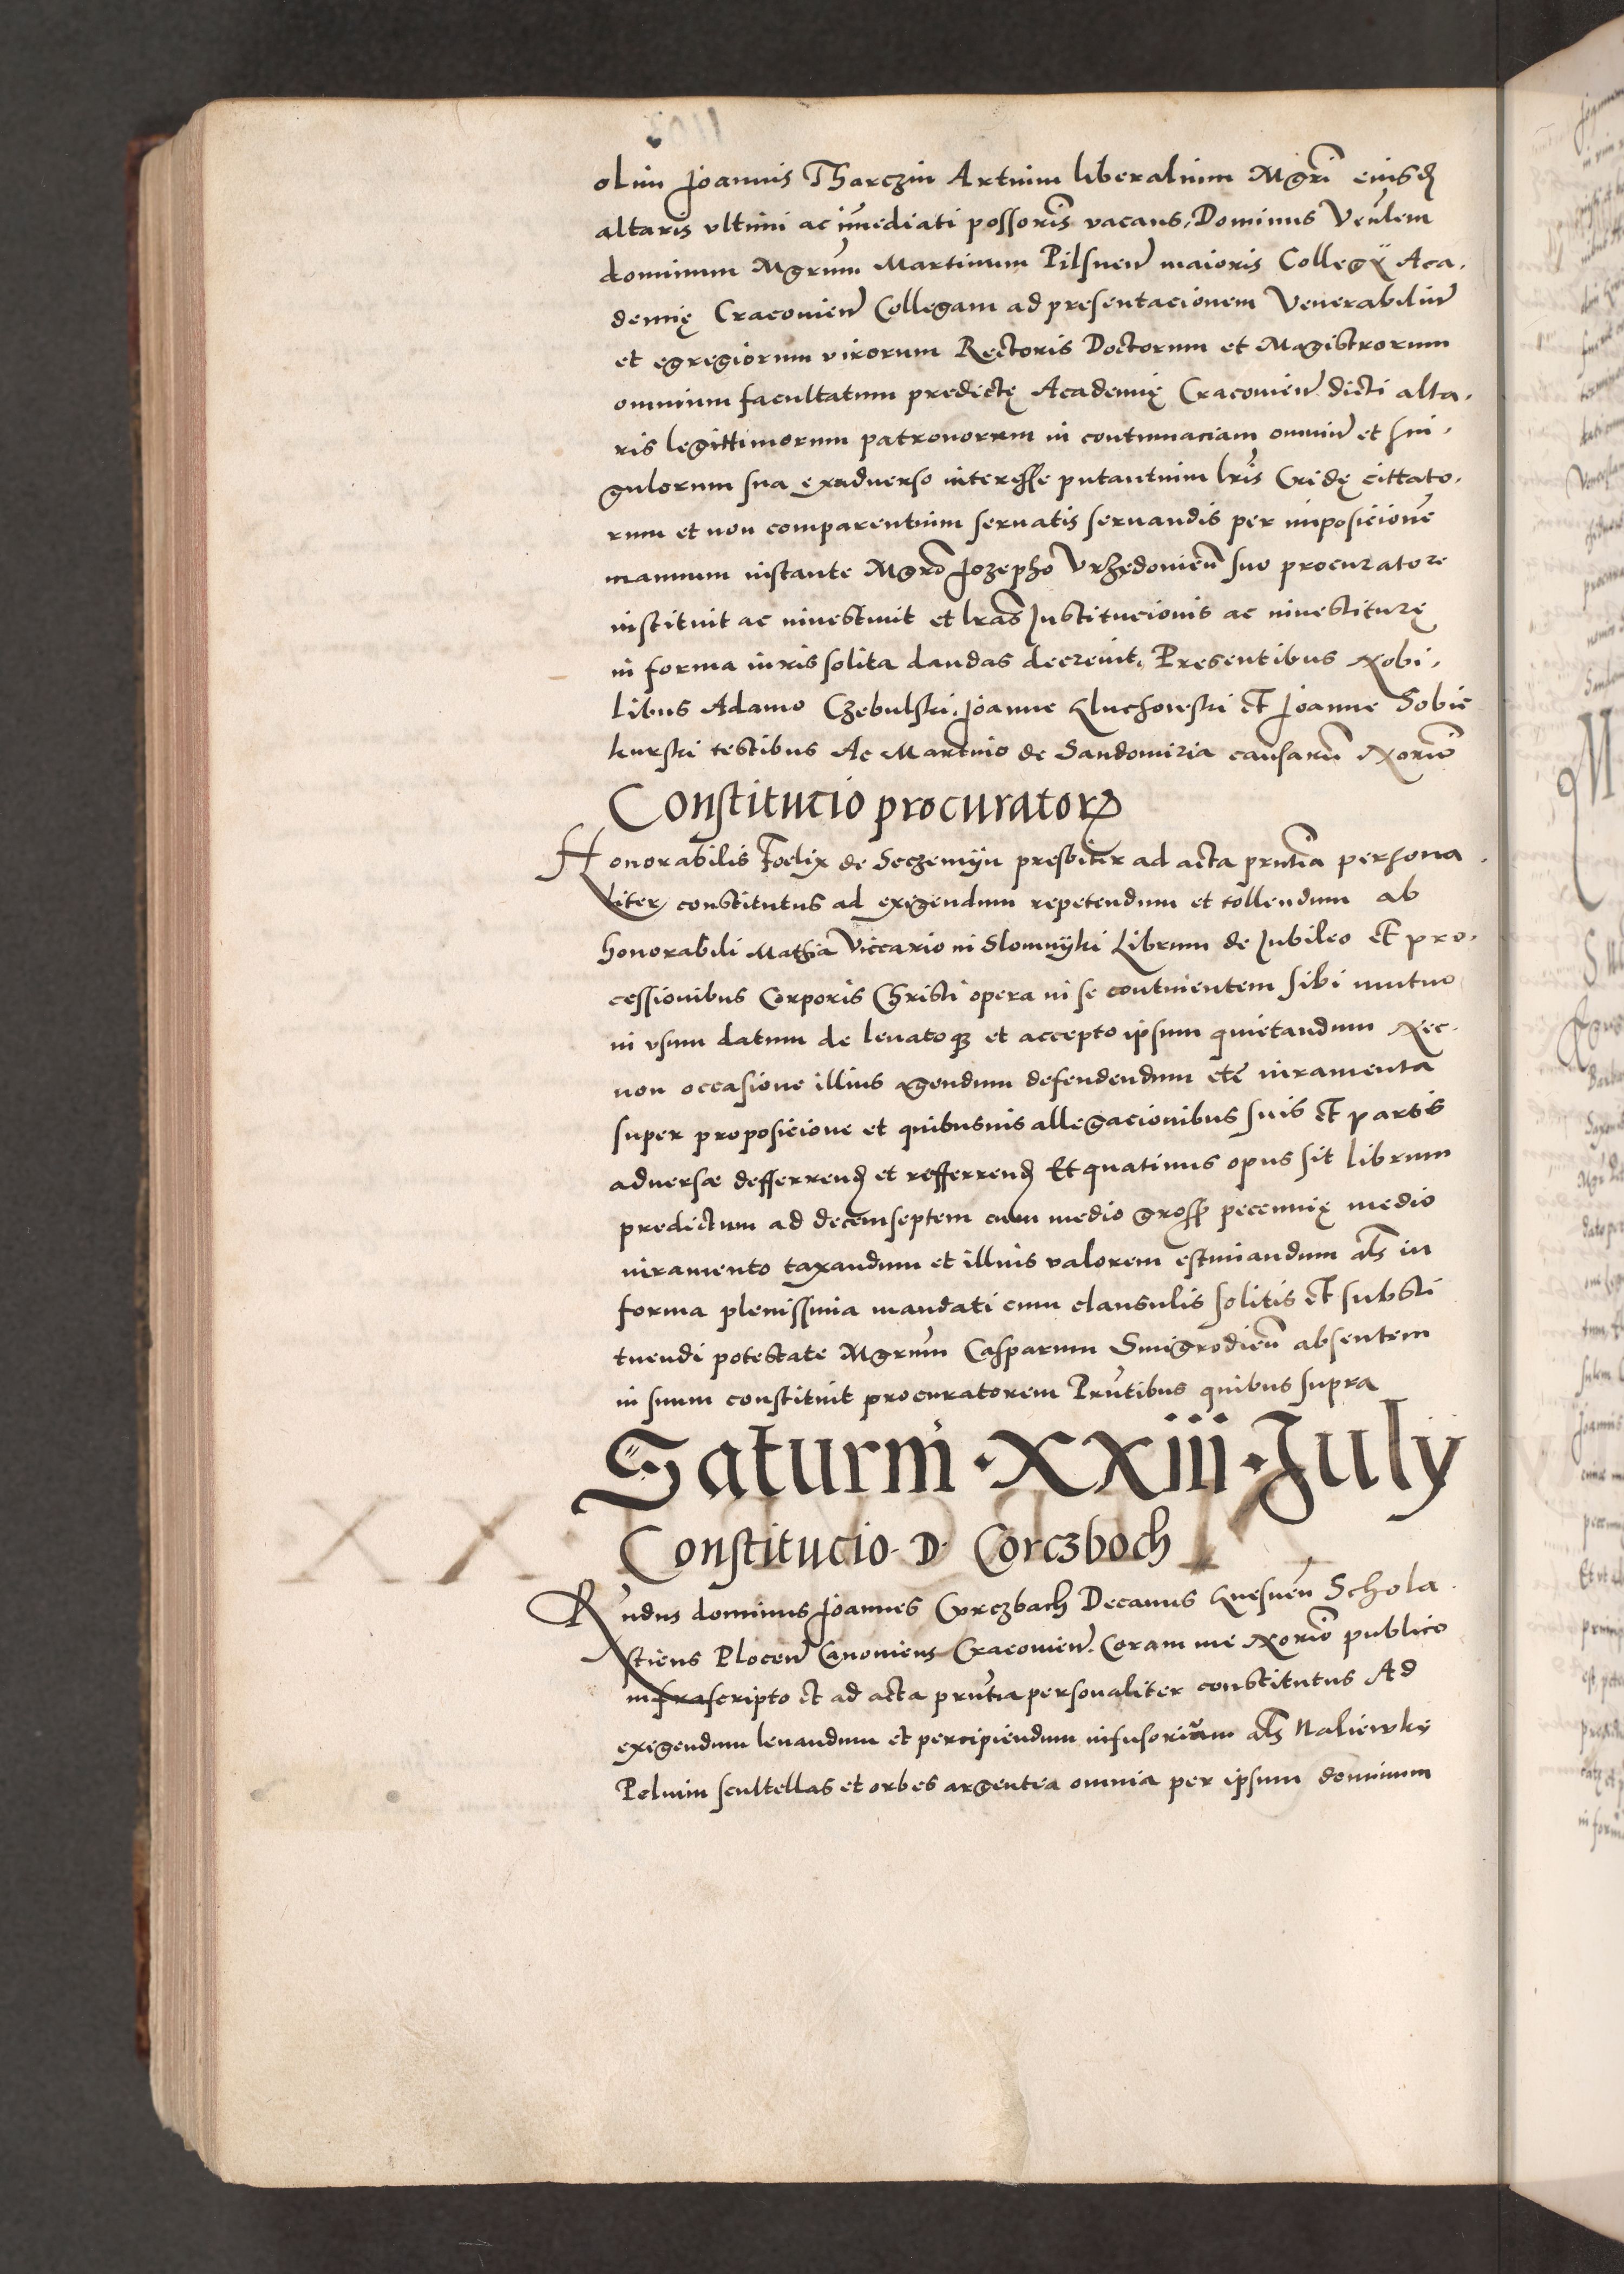 olim Joannis Tharczin Artium liberalium Mgrĩ eiusd̃
altaris vltimi ac im̃ediati possorĩs vacans, Dominus Ven̄lem
dominum Mgrūm Martinum Pilsnen̄ maioris Collegÿ Aca,
demię Cracovien̄ Collegam ad presentacionem Venerabiliu̅
et egregiorum virorum Rectoris Doctorum et Magistrorum
omnium facultatum predictę Academię Cracovien̄ dicti alta,
ris legittimorum patronorum in contumaciam omniu̅ et sin,
gulorum sua exaduerso interesse putantium lr̃is Cridę cittato,
rum et non comparentium seruatis seruandis per imposicionē
manuum instante Mgrō Jozepho Vrzędovien̄ suo procuratore
instituit ac inuestiuit et lrãs Institucionis ac inuestiturę
in forma iuris solita dandas decreuit, Presentibus Nobi,
libus Adamo Czebulski, Joanne Kluchowski et Joanne Sobie
kurski testibus Ac Martino de Sandomiria causarū Norio̅
Constitucio procuratorꝝ
Honorabilis Foelix de Seczemÿn presbiter ad acta prn̄tia persona,
liter constitutus ad exigendum repetendum et tollendum ab
honorabili Mathia Viccario in Slomnÿki Librum de Iubileo et pro,
cessionibus Corporis Christi opera in se continentem sibi mutuo
in vsum datum de leuatoqꝫ et accepto ipsum quietandum Nec,
non occasione illius agendum defendendum etc̄ iuramenta
super proposicione et quibusuis allegacionibus suis et partis
aduersæ defferrend̃ et refferrend̃ Et quatinus opus sit librum
predictum ad decemseptem cum medio gross̃ pecunię medio
iuramento taxandum et illius valorem estimandum als̃ in
forma plenissima mandati cum clausulis solitis et substi
tuendi potestate Mgrūm Casparum Smigrodien̄ absentem
in suum constituit procuratorem Prn̄tibus quibus supra
Saturni · XXIII · July
Constitucio · D · Corczboch
Rn̄dus dominus Joannes Corczbach Decanus Gnesnen̄ Schola,
sticus Plocen̄ Canonicus Cracovien̄. Coram me Norio̅ publico
infrascripto et ad acta prn̄tia personaliter constitutus Ad
exigendum leuandum et percipiendum infusorium als̃ Naliewky
Peluim scultellas et orbes argentea omnia per ipsum dominum